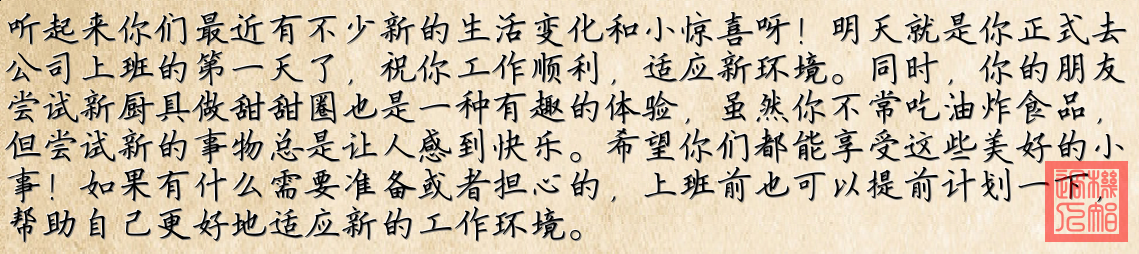 听起来你们最近有不少新的生活变化和小惊喜呀！明天就是你正式去
公司上班的第一天了，祝你工作顺利，适应新环境。同时，你的朋友
尝试新厨具做甜甜圈也是一种有趣的体验，虽然你不常吃油炸食品，
但尝试新的事物总是让人感到快乐。希望你们都能享受这些美好的小
事！如果有什么需要准备或者担心的，上班前也可以提前计划一下，
帮助自己更好地适应新的工作环境。